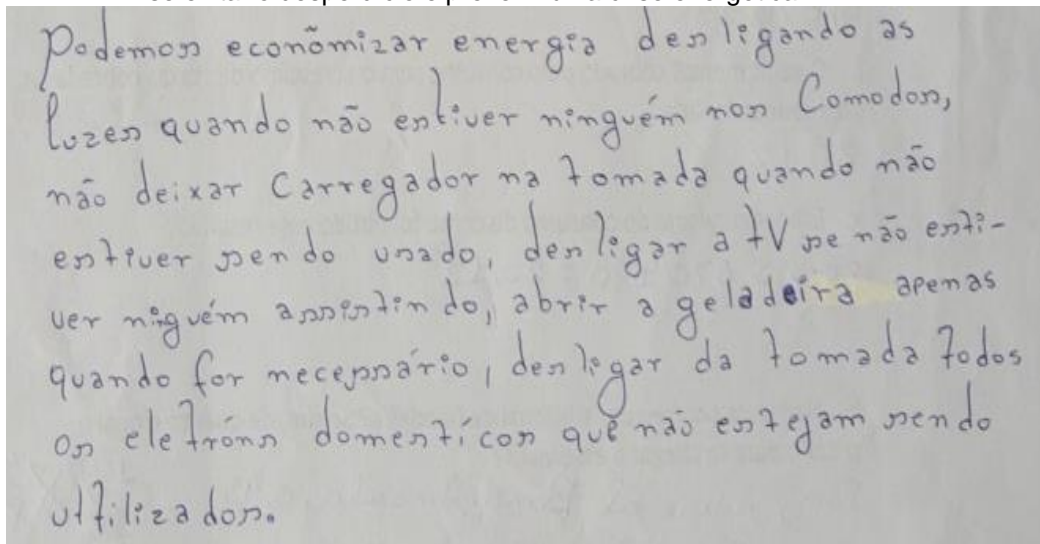 Podemos econômizar energia desligando as
luzes quando não estiver ninguém nos Comodos,
não deixar Carregador na tomada quando não
estiver sendo usado, desligar a tV se não esti-
ver niguém assistindo, abrir a geladeira apenas
quando for necessário, desligar da tomada todos
os eletrons domesticos que não estejam sendo
utilizados.